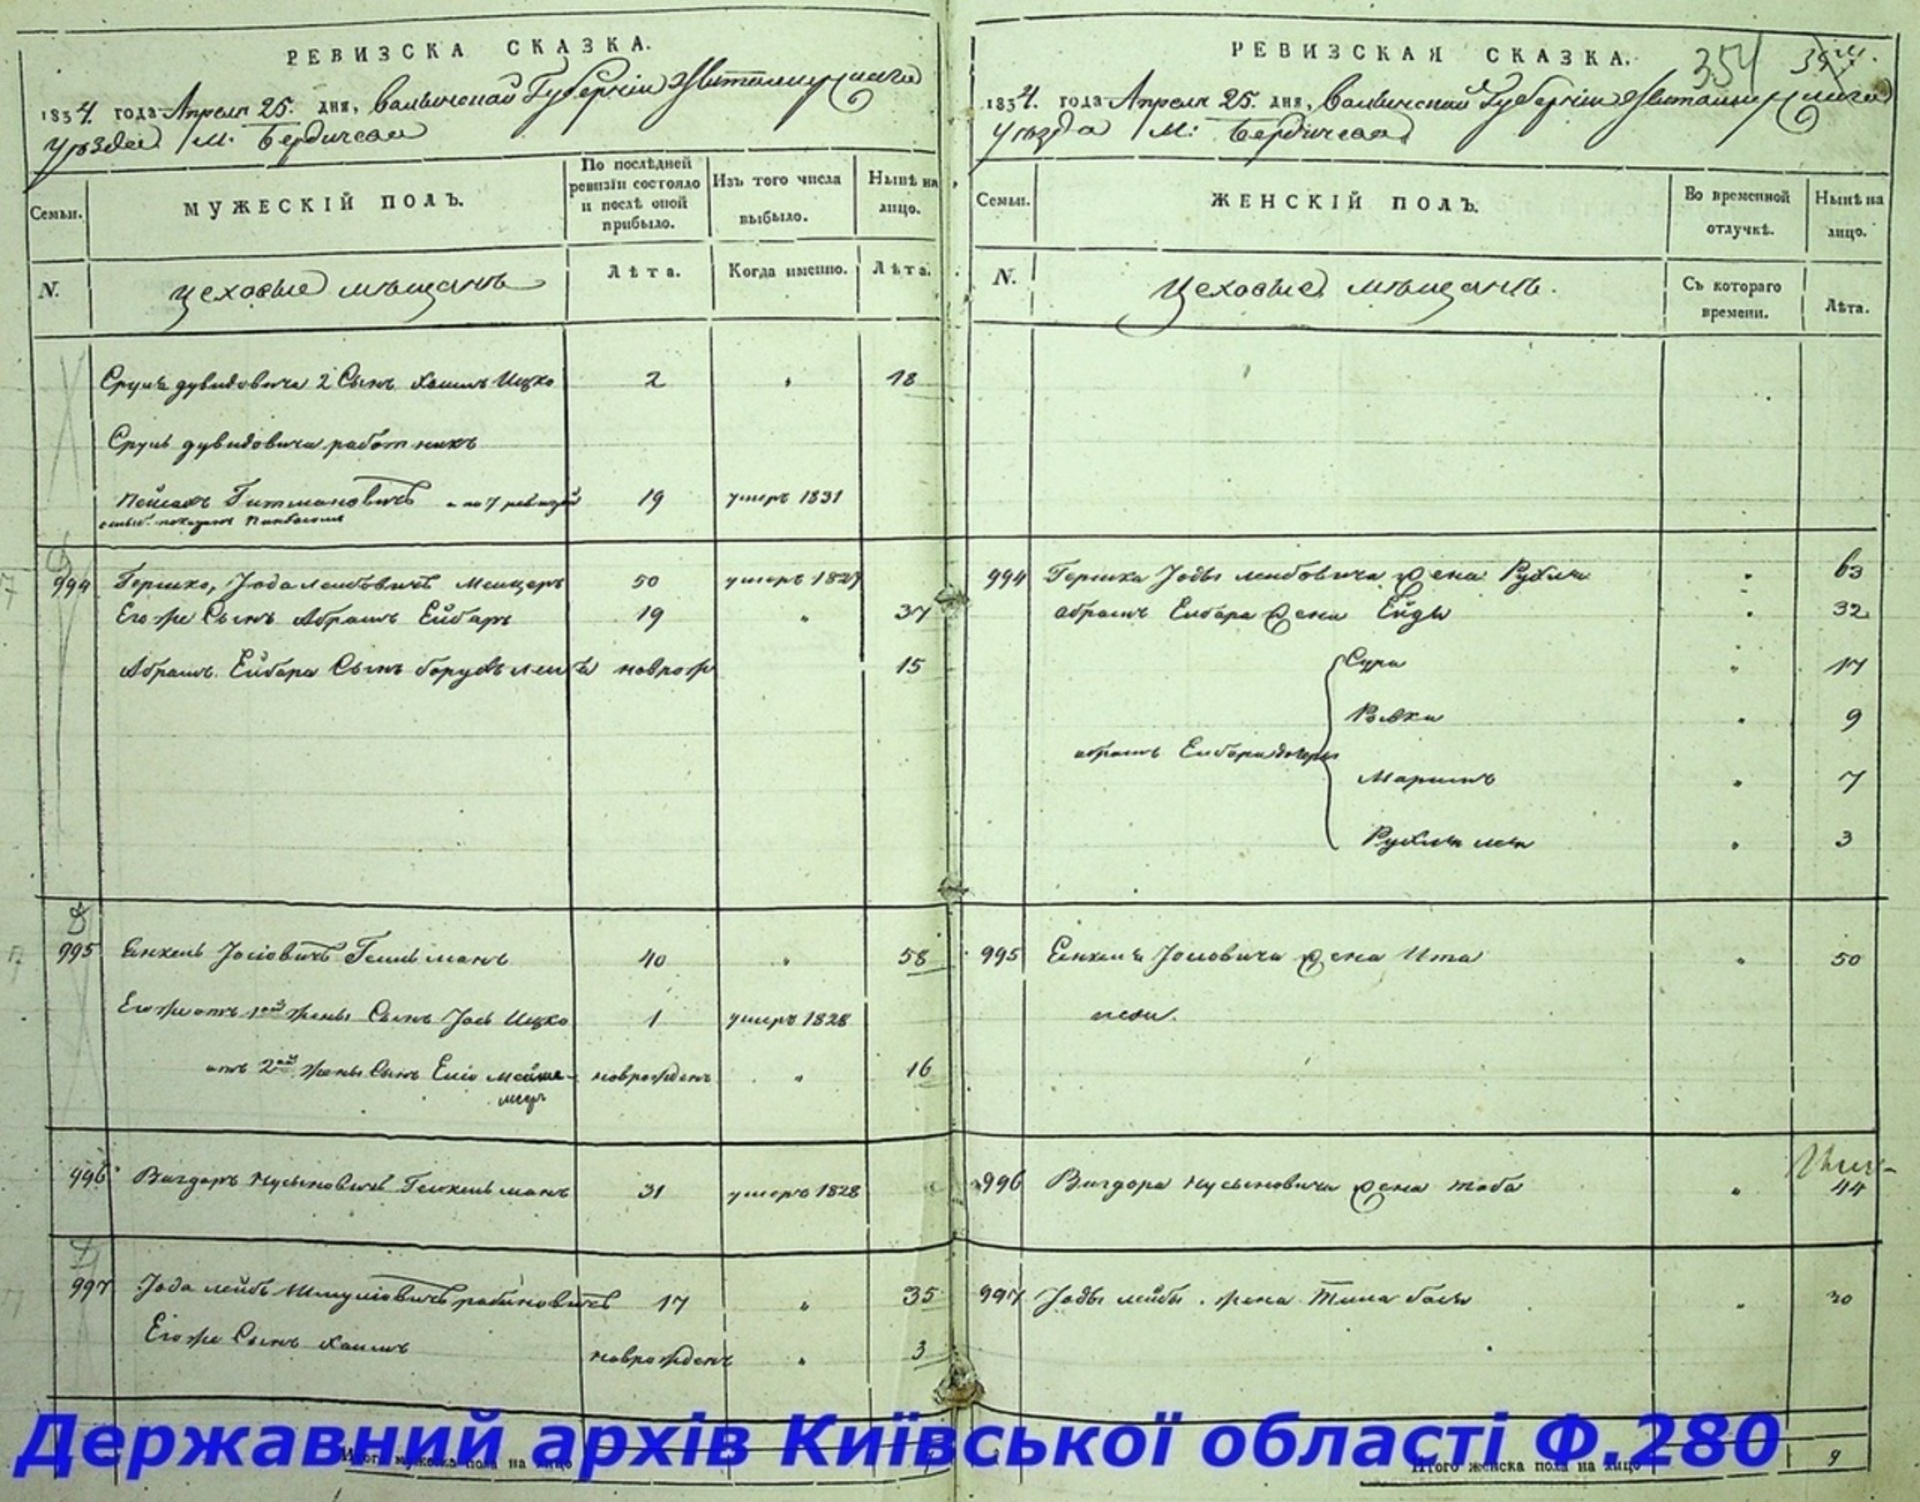 РЕВИЗСКА СКАЗКА.
1834. года Апреля 25. дня, Волынской Губернии Житомирскаго
уезда М. Бердичева
Семьи. МУЖЕСКІЙ ПОЛЪ. По послѣдней ревизіи состояло и послѣ оной прибыло. Изъ того числа выбыло. Нынѣ на лицо.
N. Цеховые мещане Лѣта. Когда именно. Лѣта.
Сруля Дувидовича 2 Сынъ Хаимъ Ицко 2 18
Сруль Дувидовича работникъ
Пейсахъ Гитмановичъ а по 7 ревизіи 19 умеръ 1831
994 Гершко, Іода Лейбовичъ 50 умеръ 1827
Его же Сынъ Абрамъ Ейбаръ 19 37
Абрамъ Ейбара Сынъ Борухъ новрож 15
995 Янкель Іосіовичъ 40 58
Его же отъ 1ой жены Сынъ Іось Ицко 1 умеръ 1828
отъ 2ой жены Сынъ новрожденъ 16
996 Вигдоръ Нусыновичъ 31 умеръ 1828
997 Іода Лейбъ Шмуліовичъ Рабиновичъ 17 35
Его же Сынъ Хаимъ новрожденъ 3
Итого мужеска пола на лицо
РЕВИЗСКАЯ СКАЗКА. 354
1834. года Апреля 25. дня, Волынской Губернии Житомирскаго
уезда М: Бердичева
Семьи. ЖЕНСКІЙ ПОЛЪ. Во временной отлучкѣ. Нынѣ на лицо.
N. Цеховые мещане. Съ котораго времени. Лѣта.
994 Гершка Іоды Лейбовича жена Рухля 63
Абрамъ Ейбара жена Ейды 32
Сура 17
Ривка 9
Абрамъ Ейбара дочери
Маримъ 7
Рухля Лея 3
995 Янкеля Іосіовича жена Ита 50
996 Вигдора Нусыновича жена Тоба 44
997 Іоды Лейбы жена 30
Итого женска пола на лицо 9
Державний архів Київської області Ф.280